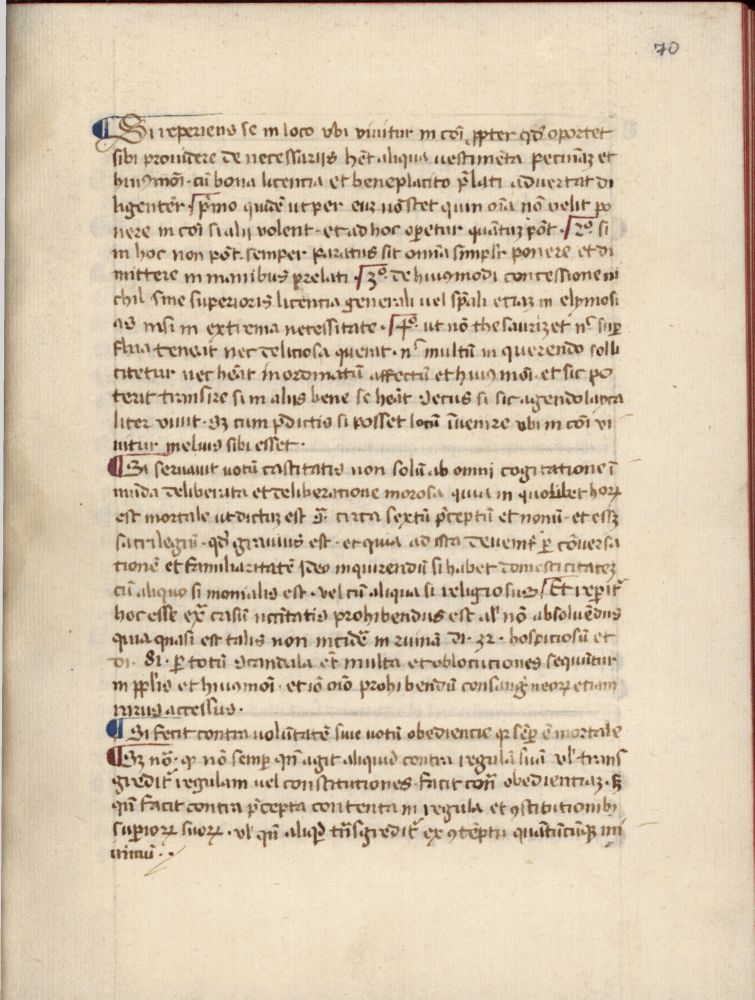 70
¶ Si reperiens se in loco vbi viuitur in coī ꝓpter qd' oportet
sibi prouidere de necessariis hēt aliqua uestimēta pecuniaꝫ et
huiꝰmōi · cū bona licentia et beneplacito p̄lati aduertat di
ligenter · p̄mo quidē ut per eū nō stet quin oīa nō velit po
nere in coī si alii volent · et ad hoc operetur quātuꝫ pōt · 2º si
in hoc non pōt · semper paratus sit omnia simplr̄ ponere et di
mittere in manibus prelati · 3º · de huiusmodi concessione ni
chil sine superioris licentia generali uel sp̄ali etiaꝫ in elymosi
as nisi in extrema necessitate · 4º · ut nō thesaurizet nc̄ suꝑ
flua teneat nec deliciosa querat · nc̄ multū in querendo solli
citetur nec heāt inordinatū affectū et huiꝰ mōi · et sic po
terit transire si in aliis bene se heāt Secus si sic agendo layca
liter viuit · Sꝫ cum p̄dictis si posset locū īuenire vbi in coī vi
uitur melius sibi esset ·
¶ Si seruauit uotū castitatis non solū ab omni cogitatione ī
mūda deliberata et deliberatione morosa quia in quolibet hoꝝ
est mortale ut dictuꝫ est circa sextū p̄ceptū et nonū · et est
sacrilegiū · qd' grauius est · et quia ad ista deuenit' ꝑ cōuersa
tionē et familiaritatē Ideo inquirendū si habet domesticitateꝫ
cū aliquo si monialis est · vel cū aliqua si religiosus Et repit'
hoc esse ex̄ casū nccītatis prohibendus est al' nō absoluēdus
quia quasi est talis non incidē in ruinā di · 32 · hospiciolū et
di · 81 · ꝑ totū Scandala et multa et oblocutiones sequūtur
in pplis et huiꝰmōi · et iō oīo prohibendū consanguīneoꝝ etiam
rarus accessus ·
¶ Si fecit contra uolūtatē siue uotū obedientie ꝙ semꝑ ē mortale
¶ Sꝫ nō · ꝙ nō semꝑ qn̄ agit aliquid contra regulā suā vl' trans
gredit' regulam uel constitutiones · facit con̄ obedientiaꝫ · sꝫ
qn̄ facit contra p̄cepta contenta in regula et ꝯstitutionibꝰ
suꝑioꝝ suoꝝ · vl' qn̄ aliqd' trn̄sgredit' ex ꝯtēptu quātūcūqꝫ mi
nimū · ·